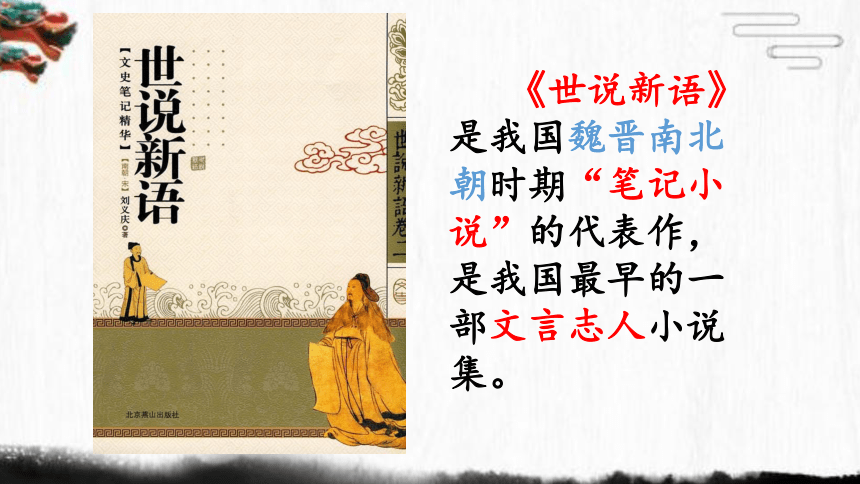 世说新语
【文史笔记精华】
【南朝 宋】刘义庆 著
世說新語卷二
北京燕山出版社
《世说新语》
是我国魏晋南北
朝时期“笔记小
说”的代表作，
是我国最早的一
部文言志人小说
集。